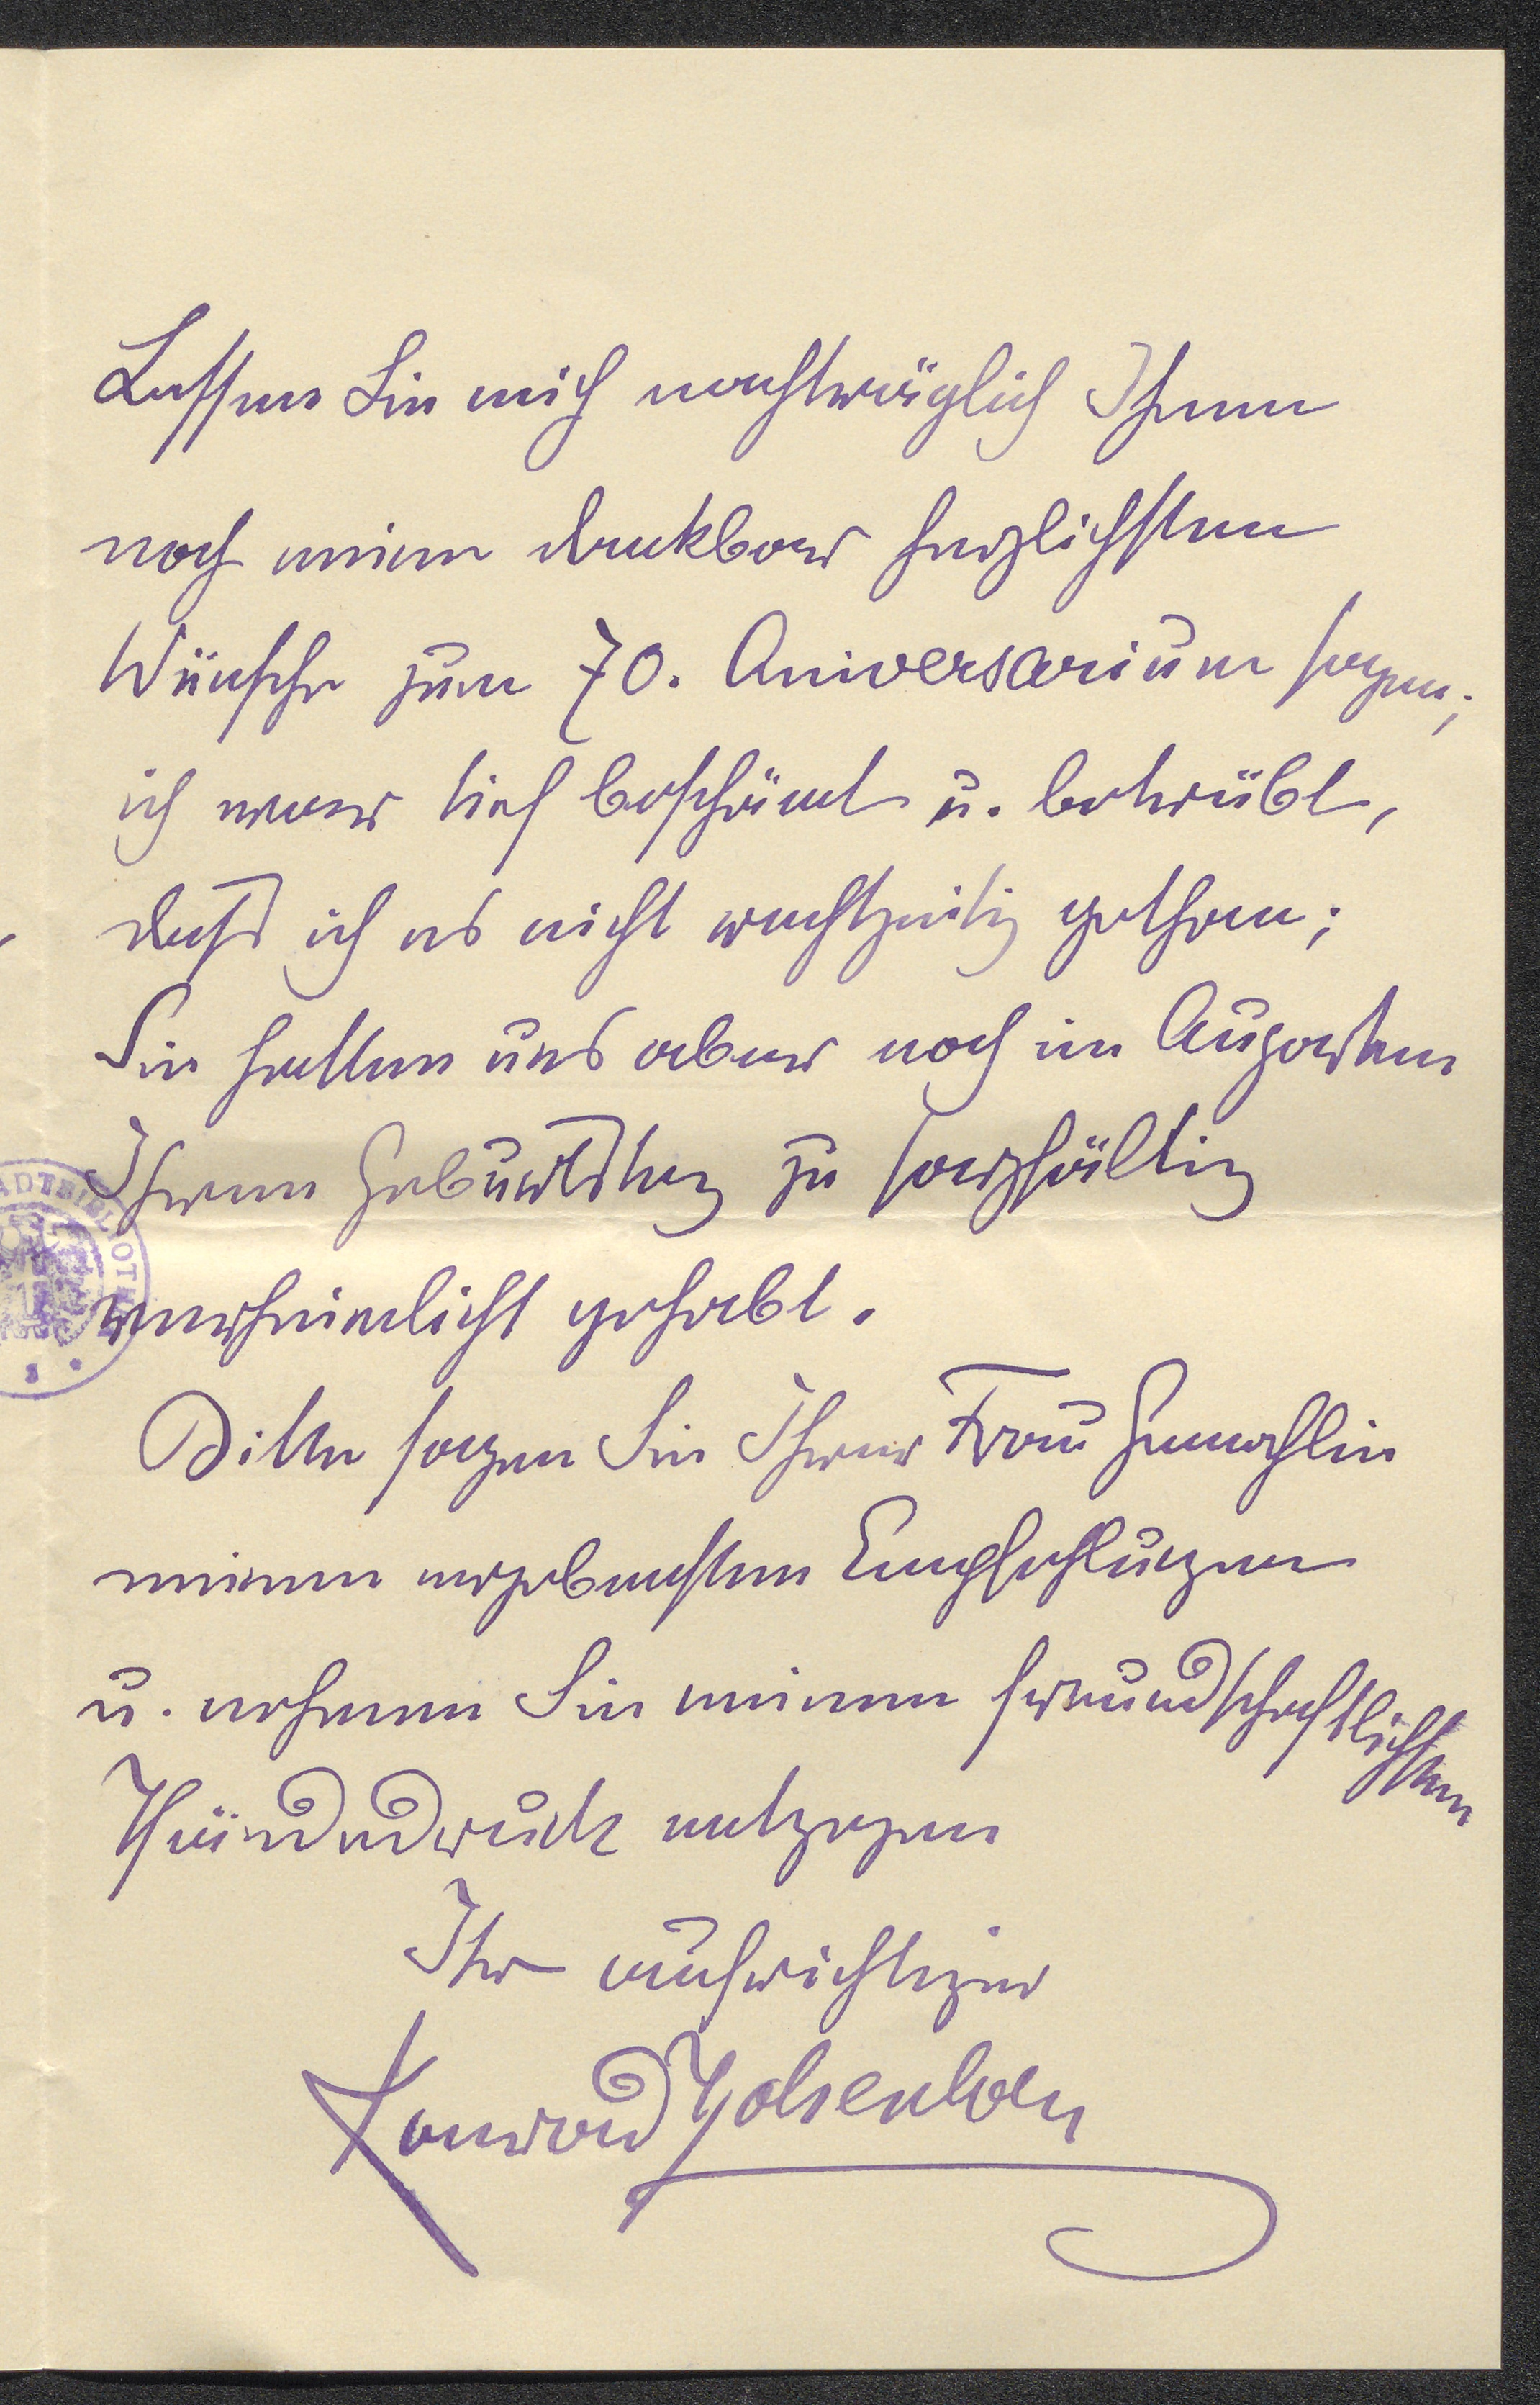 Lassen Sie mich nachträglich Ihnen
noch meine dankbar herzlichsten
Wünsche zum 70. Aniversarium sagen;
ich war tief beschämt u. betrübt,
daß ich es nicht rechtzeitig gethan;
Sie hatten uns aber noch im Augarten
Ihren Geburtstag zu sorgfältig
verheimlicht gehabt.
Bitte sagen Sie Ihrer Frau Gemahlin
meinen ergebensten Empfehlungen
u. nehmen Sie meinen freundschaftlichsten
Händedruck entgegen
Ihr aufrichtiger
Konrad